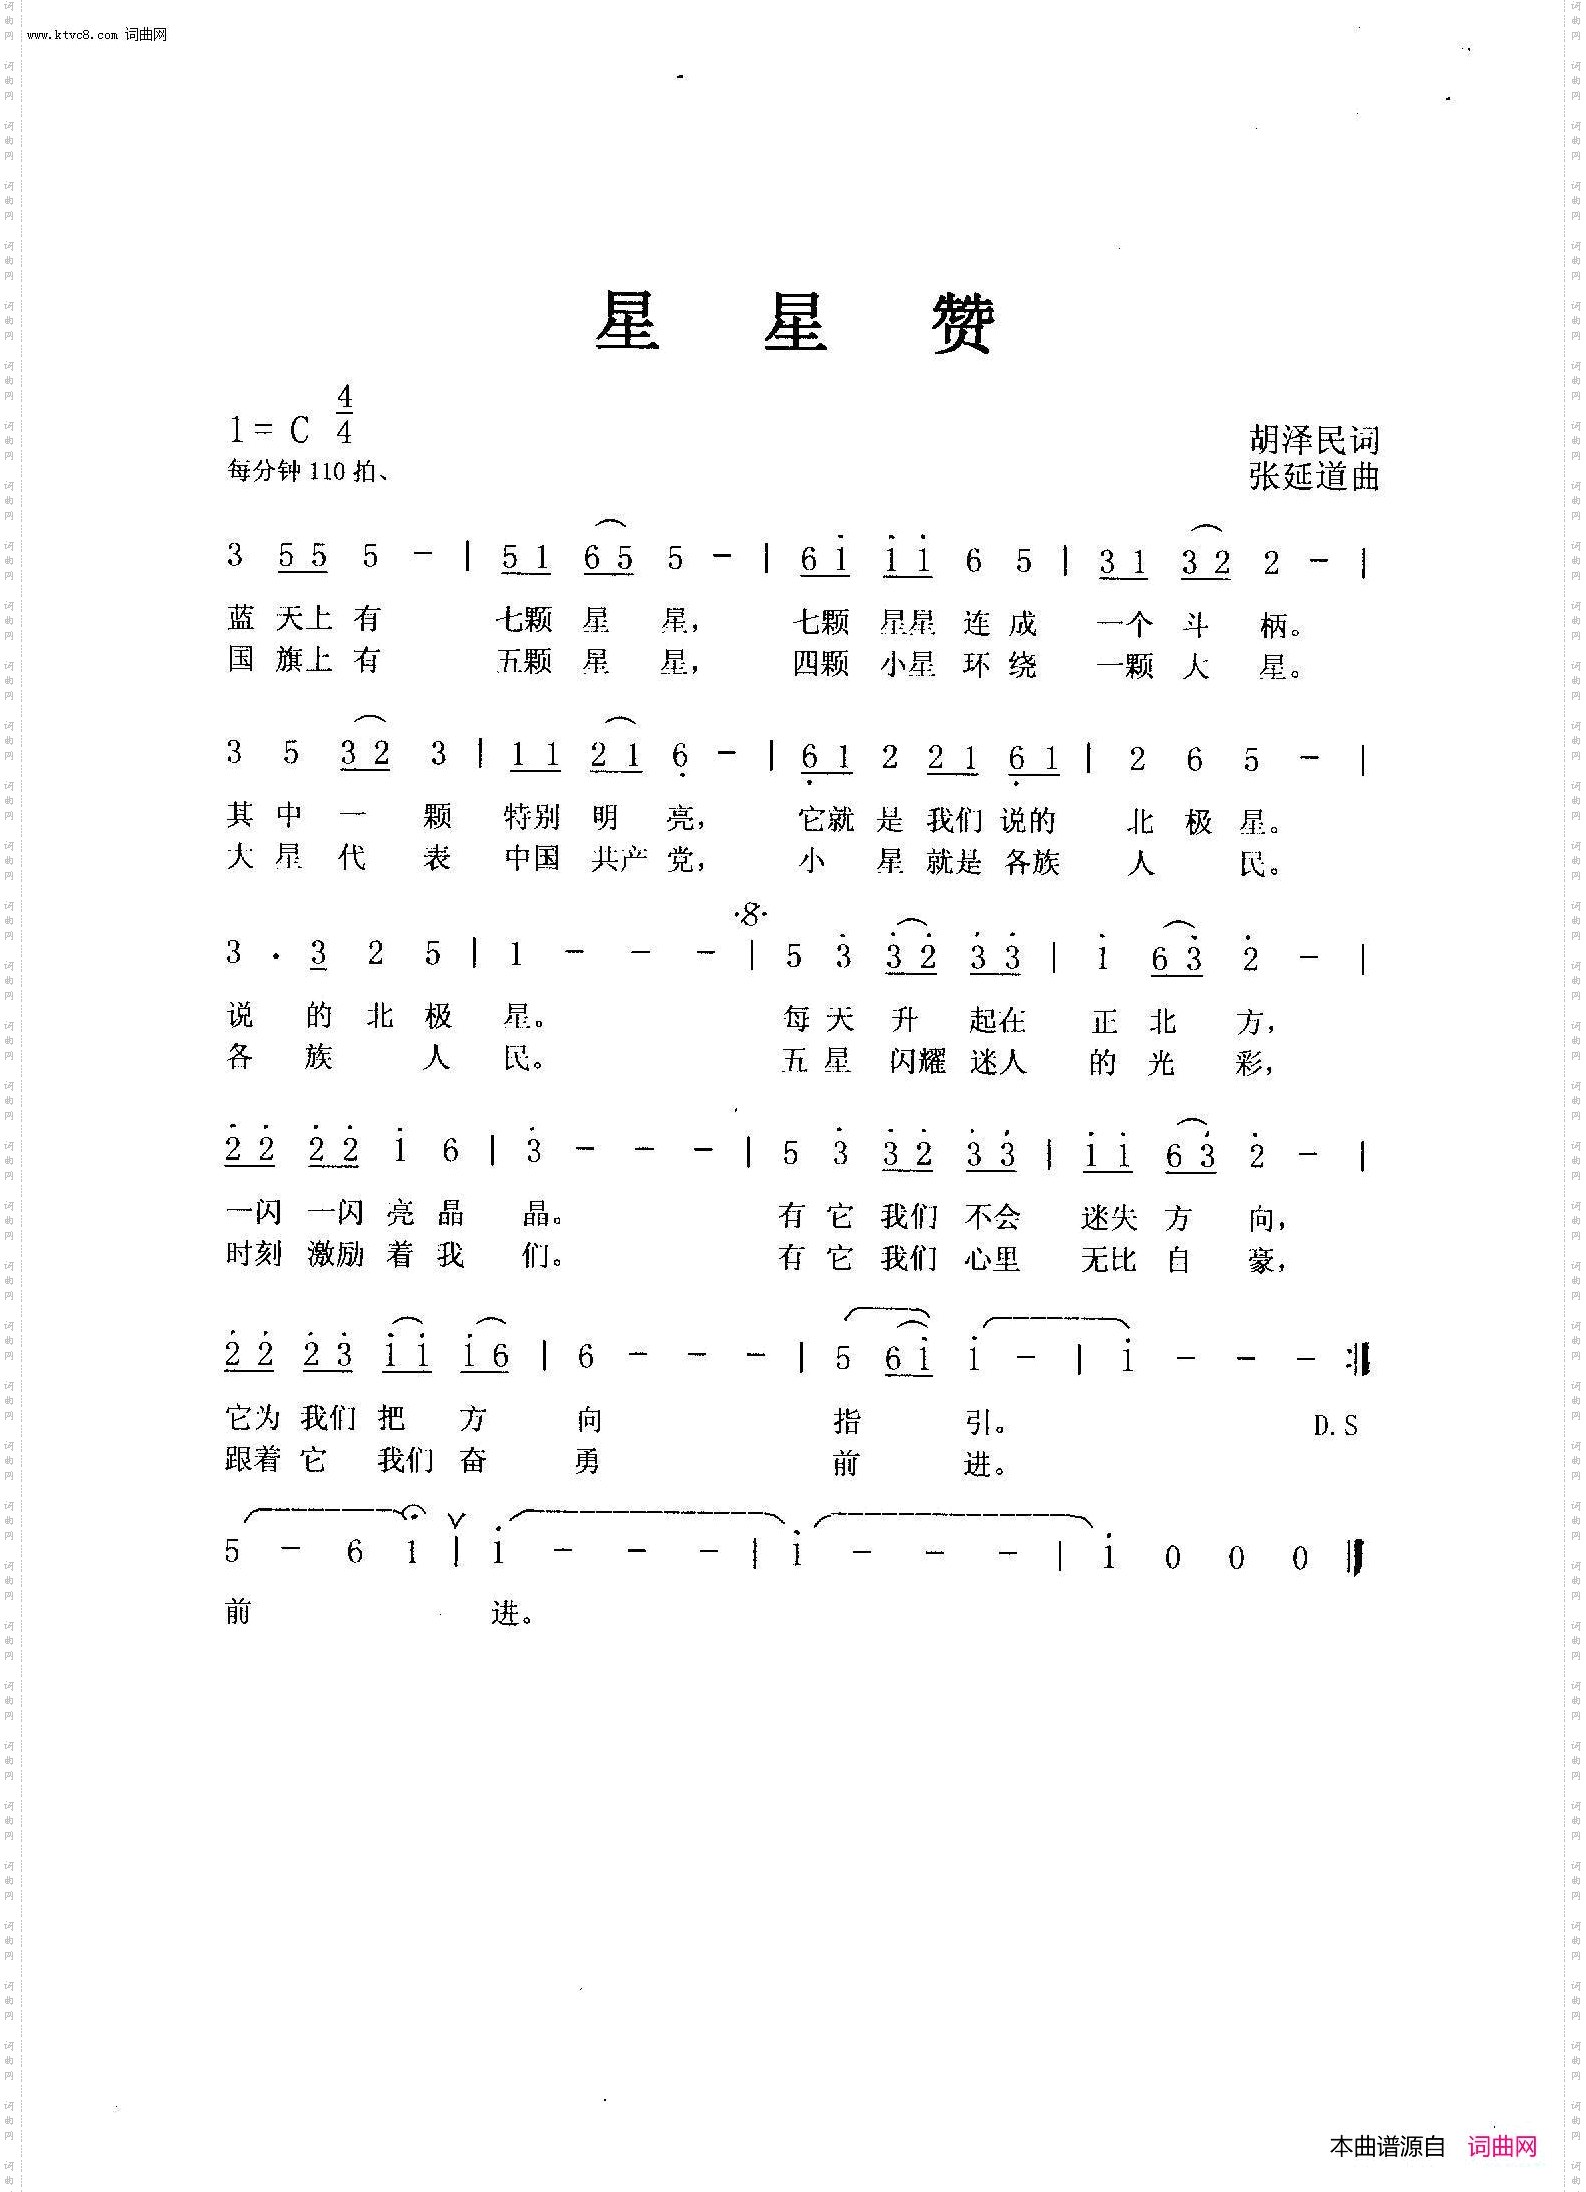 www.ktvc8.com 词曲网
星 星 赞
1= C 4/4
每分钟 110 拍、
胡泽民词
张延道曲
3 5 5 5 － | 5 1 6 5 5 － | 6 i i i 6 5 | 3 1 3 2 2 － |
蓝 天上 有 七颗 星 星， 七颗 星星 连 成 一个 斗 柄。
国 旗上 有 五颗 星 星， 四颗 小星 环 绕 一颗 大 星。
3 5 3 2 3 | 1 1 2 1 6 － | 6 1 2 2 1 6 1 | 2 6 5 － |
其 中 一 颗 特别 明 亮， 它就 是 我们 说的 北 极 星。
大 星 代 表 中国 共产 党， 小 星 就是 各族 人 民。
3 . 3 2 5 | 1 － － － | 5 3 3 2 3 3 | i 6 3 2 － |
说 的 北 极 星。 每 天 升 起在 正 北 方，
各 族 人 民。 五 星 闪耀 迷人 的 光 彩，
2 2 2 2 i 6 | 3 － － － | 5 3 3 2 3 3 | i i 6 3 2 － |
一闪 一闪 亮 晶 晶。 有 它 我们 不会 迷失 方 向，
时刻 激励 着 我 们。 有 它 我们 心里 无比 自 豪，
2 2 2 3 i i i 6 | 6 － － － | 5 6 i i － | i － － － :||
它为 我们 把 方 向 指 引。 D.S
跟着 它 我们 奋 勇 前 进。
5 － 6 1 | i － － － | i － － － | i 0 0 0 ||
前 进。
本曲谱源自 词曲网